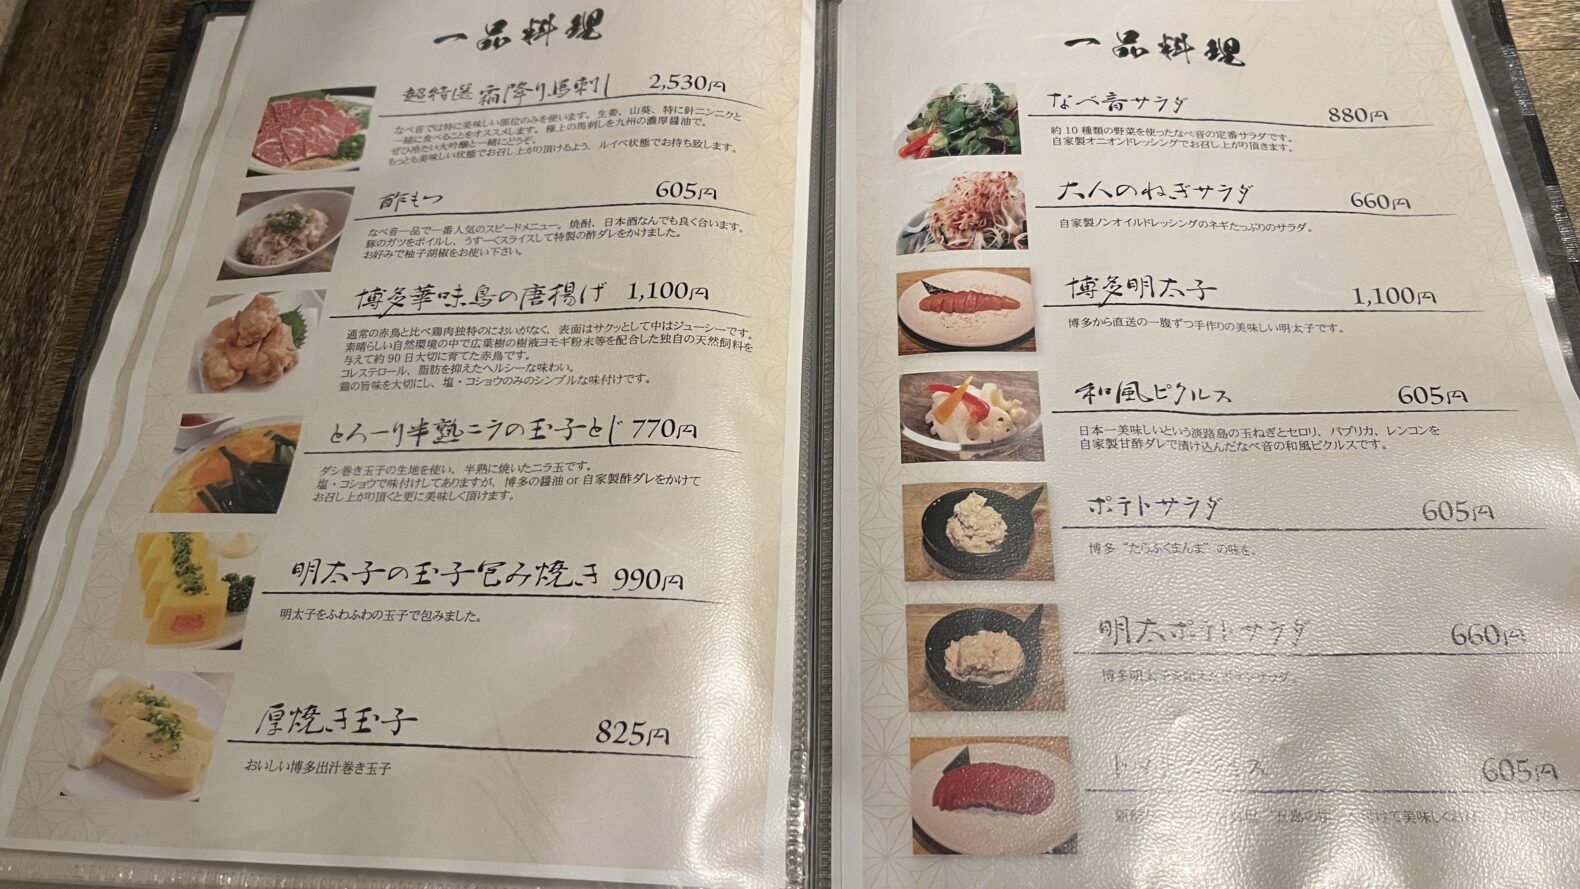 一品料理
超特選 霜降り馬刺し 2,530円
なべ音では特に美味しい部位のみを使います。生姜、山葵、特に針ニンニクと
一緒に食べることをオススメします。極上の馬刺しを九州の濃厚醤油で。
ぜひ冷たい大吟醸と一緒にどうぞ。
もっとも美味しい状態でお召し上がり頂けるよう、ルイベ状態でお持ち致します。
酢もつ 605円
なべ音一品で一番人気のスピードメニュー。焼酎、日本酒なんでも良く合います。
豚のガツをボイルし、うすーくスライスして特製の酢ダレをかけました。
お好みで柚子胡椒をお使い下さい。
博多華味鳥の唐揚げ 1,100円
通常の赤鳥と比べ鶏肉独特のにおいがなく、表面はサクッとして中はジューシーです。
素晴らしい自然環境の中で広葉樹の樹液ヨモギ粉末等を配合した独自の天然飼料を
与えて約90日大切に育てた赤鳥です。
コレステロール、脂肪を抑えたヘルシーな味わい。
鶏の旨味を大切にし、塩・コショウのみのシンプルな味付けです。
とろーり半熟ニラの玉子とじ 770円
ダシ巻き玉子の生地を使い、半熟に焼いたニラ玉です。
塩・コショウで味付けしてありますが、博多の醤油or自家製酢ダレをかけて
お召し上がり頂くと更に美味しく頂けます。
明太子の玉子包み焼き 990円
明太子をふわふわの玉子で包みました。
厚焼き玉子 825円
おいしい博多出汁巻き玉子
一品料理
なべ音サラダ 880円
約10種類の野菜を使ったなべ音の定番サラダです。
自家製オニオンドレッシングでお召し上がり頂きます。
大人のねぎサラダ 660円
自家製ノンオイルドレッシングのネギたっぷりのサラダ。
博多明太子 1,100円
博多から直送の一腹ずつ手作りの美味しい明太子です。
和風ピクルス 605円
日本一美味しいという淡路島の玉ねぎとセロリ、パプリカ、レンコンを
自家製甘酢ダレで漬け込んだなべ音の和風ピクルスです。
ポテトサラダ 605円
博多“たらふくまんま”の味を。
明太ポテトサラダ 660円
博多明太子を加えたポテトサラダ。
605円
て美味しく